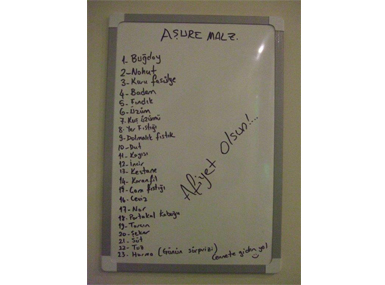 AŞURE MALZ.
1. Buğday
2- Nohut
3- Kuru fasülye
4- Badem
5. Fındık
6- Üzüm
7. Kuş Üzümü
8. Yer Fıstığı
9- Dolmalık fıstık
10- Dut
11- Kayısı
12- İncir
13- Kestane
14. Karanfil
15- Çam fıstığı
16- Ceviz
17- Nar
18. Portakal Kabuğu
19- Tarçın
20- Şeker
21- Süt
22- Tuz
23- Hurma (Günün sürprizi)
Afiyet Olsun!...